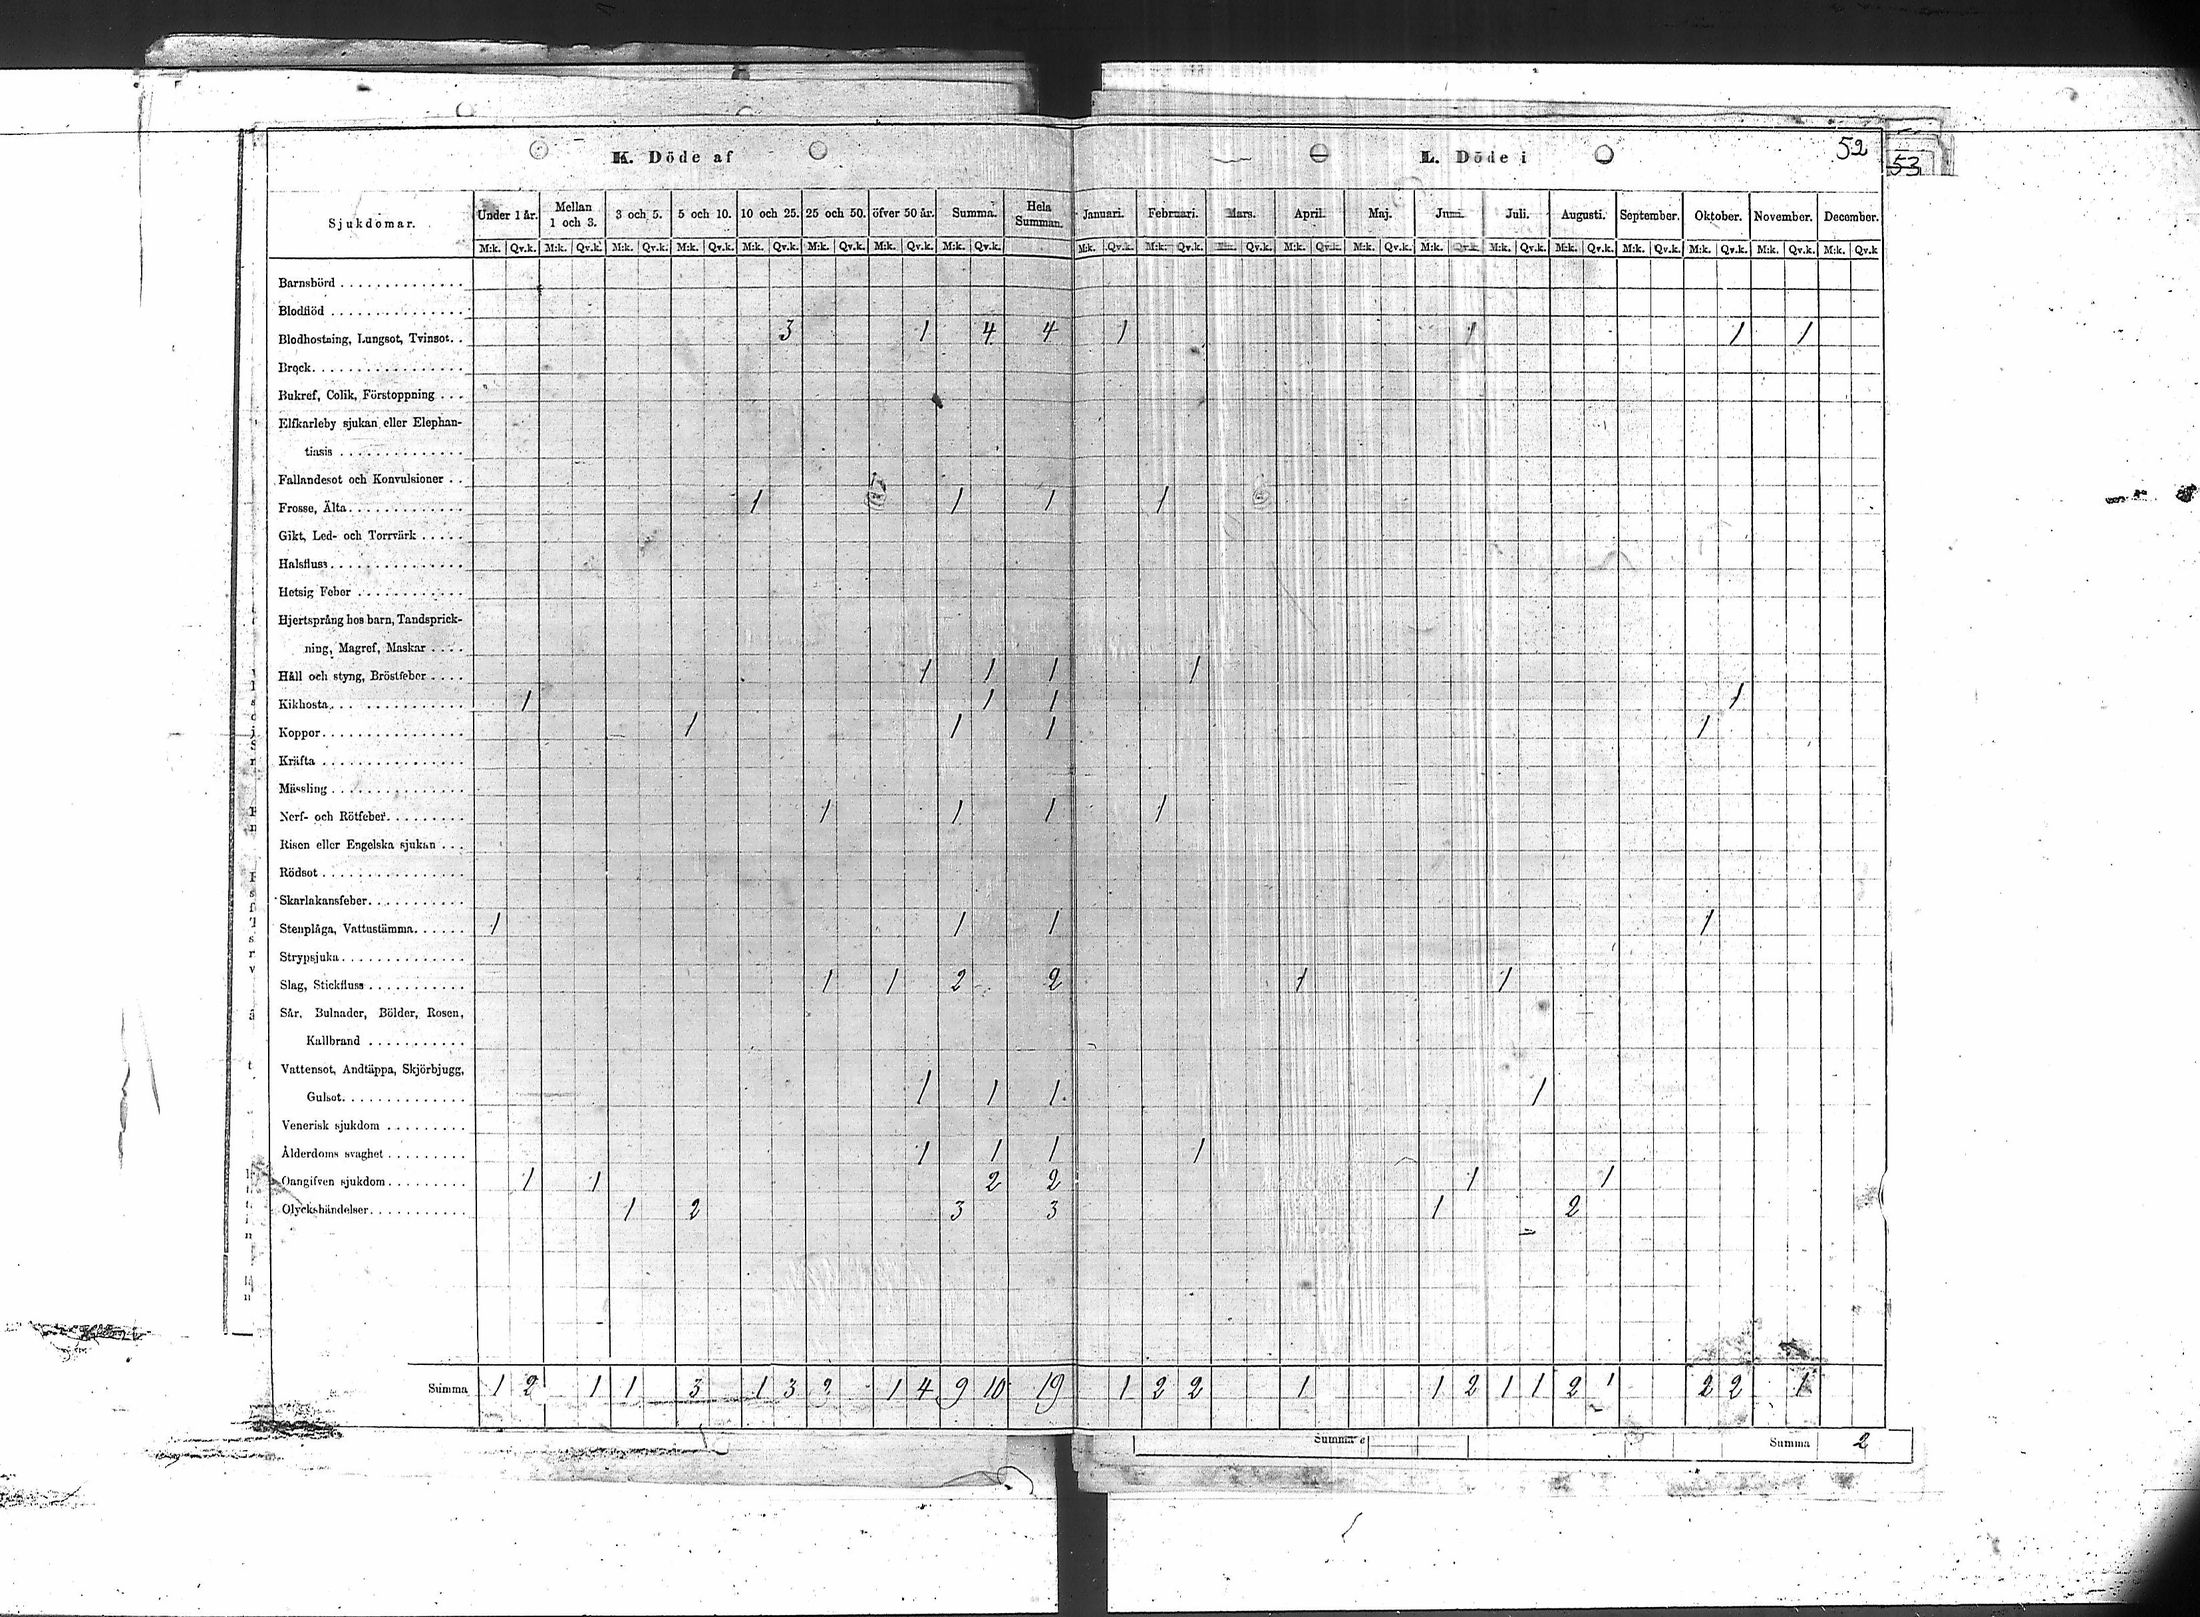 K. Döde af
L. Döde i
52
53
Sjukdomar. Under 1 år. Mellan 1 och 3. 3 och 5. 5 och 10. 10 och 25. 25 och 50. öfver 50 år. Summa. Hela Summan. Januari. Februari. Mars. April. Maj. Juni. Juli. Augusti. September. Oktober. November. December.
M:k. Qv.k. M:k. Qv.k. M:k. Qv.k. M:k. Qv.k. M:k. Qv.k. M:k. Qv.k. M:k. Qv.k. M:k. Qv.k. M:k. Qv.k. M:k. Qv.k. M:k. Qv.k. M:k. Qv.k. M:k. Qv.k. M:k. Qv.k. M:k. Qv.k. M:k. Qv.k. M:k. Qv.k. M:k. Qv.k. M:k. Qv.k. M:k. Qv.k
Barnsbörd
Blodflöd
Blodhostning, Lungsot, Tvinsot. 3 1 4 4 1 1 1 1
Bråck
Bukref, Colik, Förstoppning
Elfkarleby sjukan eller Elephan-
tiasis
Fallandesot och Konvulsioner
Frosse, Älta 1 1 1 1
Gikt, Led- och Torrvärk
Halsfluss
Hetsig Feber
Hjertsprång hos barn, Tandsprick-
ning, Magref, Maskar
Håll och styng, Bröstfeber 1 1 1 1
Kikhosta 1 1 1 1
Koppor 1 1 1 1
Kräfta
Mässling
Nerf- och Rötfeber 1 1 1 1
Risen eller Engelska sjukan
Rödsot
Skarlakansfeber
Stenplåga, Vattustämma 1 1 1 1
Strypsjuka
Slag, Stickfluss 1 1 2 2 1 1
Sår, Bulnader, Bölder, Rosen,
Kallbrand
Vattensot, Andtäppa, Skjörbjugg,
Gulsot 1 1 1 1
Venerisk sjukdom
Ålderdoms svaghet 1 1 1 1
Oangifven sjukdom 1 1 2 2 1 1
Olyckshändelser 1 2 3 3 1 2
Summa 1 2 1 1 3 1 3 2 1 4 9 10 19 1 2 2 1 1 2 1 1 2 1 2 2 1
Summa
Summa 2